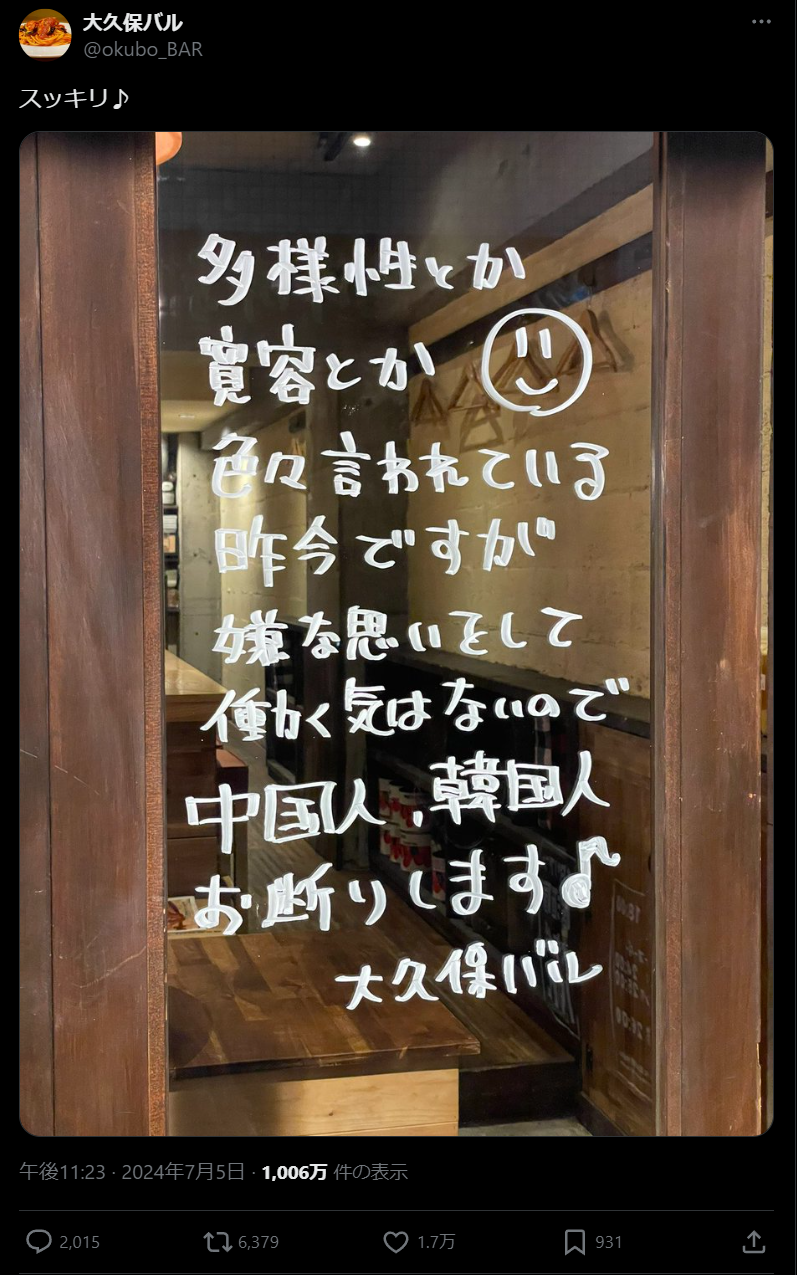 大久保バル
@okubo_BAR
スッキリ♪
多様性とか
寛容とか
色々言われている
昨今ですが
嫌な思いをして
働く気はないので
中国人、韓国人
お断りします♪
大久保バル
午後11:23 · 2024年7月5日 · 1,006万 件の表示
2,015
6,379
1.7万
931